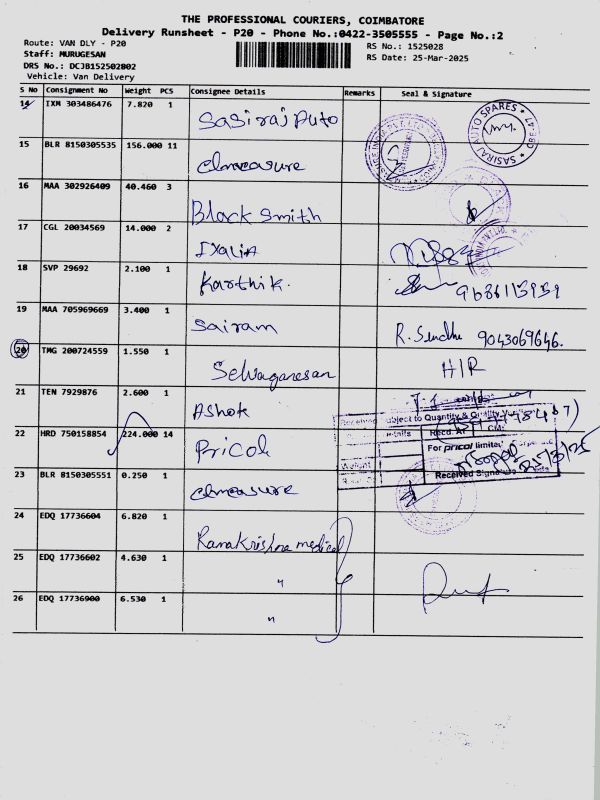 THE PROFESSIONAL COURIERS, COIMBATORE
Delivery Runsheet - P20 - Phone No.:0422-3505555 - Page No.:2
Route: VAN DLY - P20
Staff: MURUGESAN
DRS No.: DCJB152502802
Vehicle: Van Delivery
RS No.: 1525028
RS Date: 25-Mar-2025
S No Consignment No Weight PCS Consignee Details Remarks Seal & Signature
14 IXM 303486476 7.820 1 Sasiraj Auto SASIRAJ AUTO SPARES
15 BLR 8150305535 156.000 11 Elmeasure
16 MAA 302926409 40.460 3 Black Smith
17 CGL 20034569 14.000 2 IXALIA
18 SVP 29692 2.100 1 Karthik.
19 MAA 705969669 3.400 1 Sairam R. Sindhu 9043069646.
20 TMG 200724559 1.550 1 Selvaganesan H/R
21 TEN 7929876 2.600 1 Ashok
22 HRD 750158854 224.000 14 Pricol
subject to Quantity & Quality
Recd. At
For pricol limited
Received Signature
25/3/25
23 BLR 8150305551 0.250 1 Elmeasure
24 EDQ 17736604 6.820 1 Ramakrishna medical
25 EDQ 17736602 4.630 1 "
26 EDQ 17736900 6.530 1 "